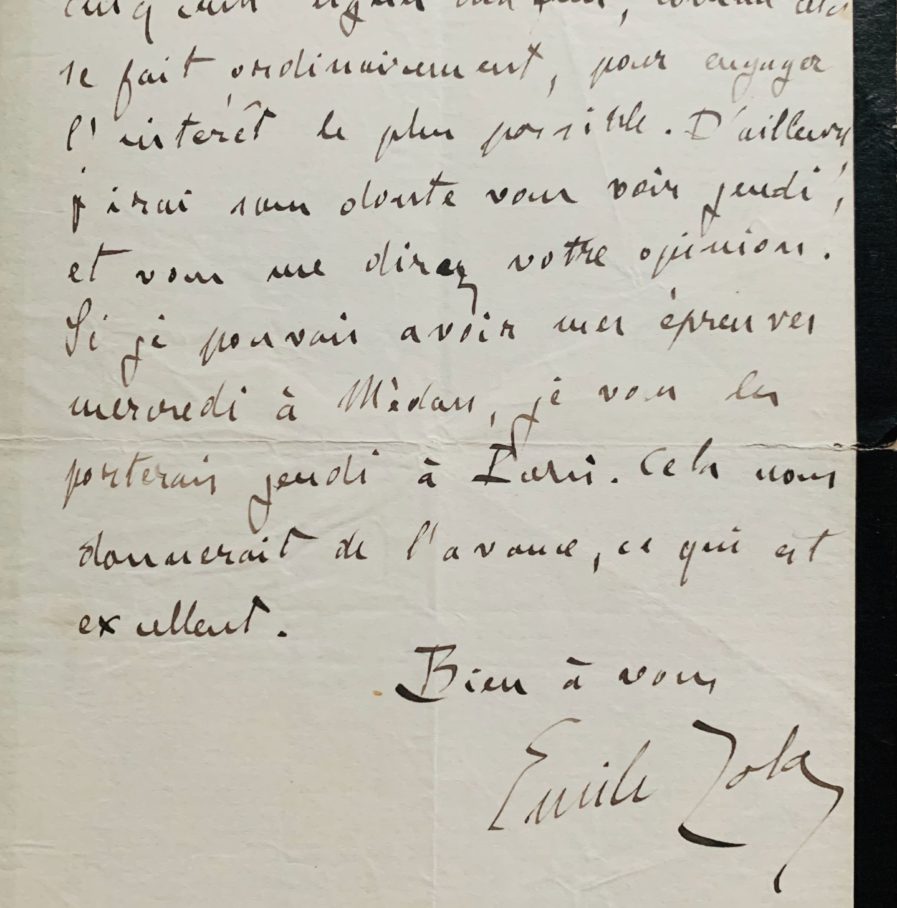 se fait ordinairement, pour engager
l'intérêt le plus possible. D'ailleurs
j'irai sans doute vous voir jeudi,
et vous me direz votre opinion.
Si je pouvais avoir mes épreuves
mercredi à Médan, je vous les
porterais jeudi à Paris. Cela nous
donnerait de l'avance, ce qui est
excellent.
Bien à vous
Emile Zola